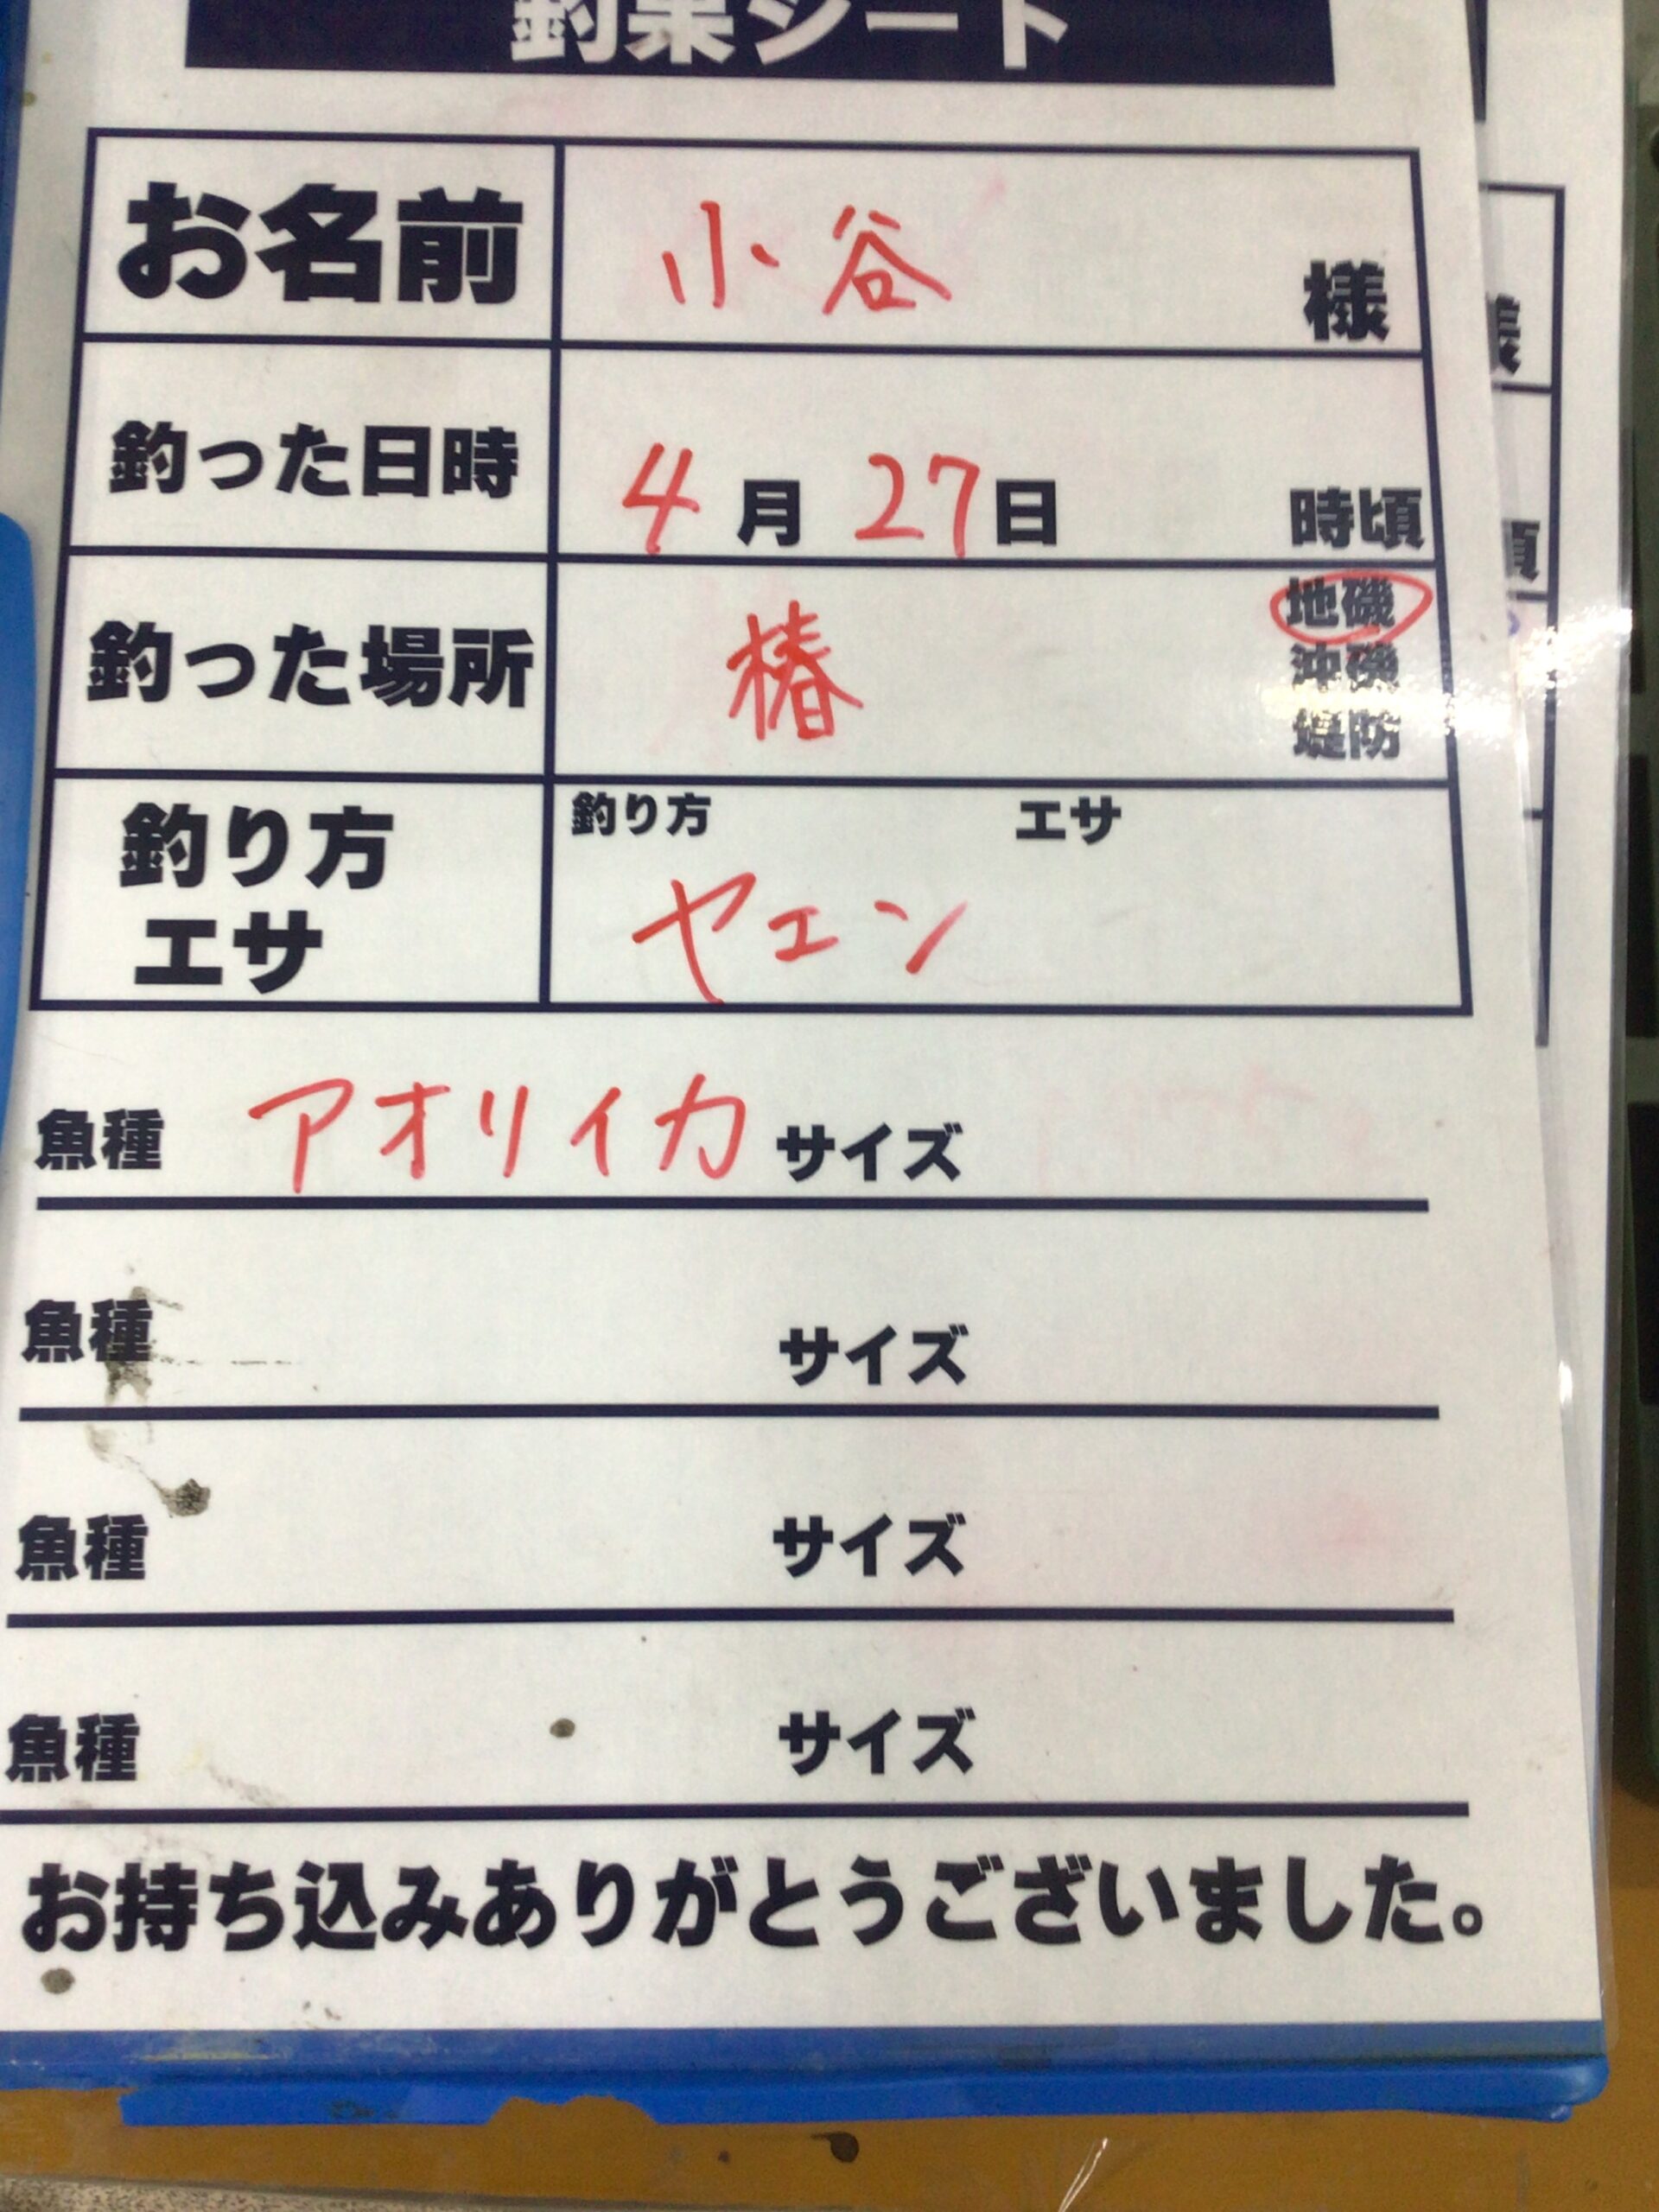 釣果シート
お名前 小谷 様
釣った日時 4月27日 時頃
釣った場所 椿 地磯
沖磯
堤防
釣り方 エサ
釣り方
エサ
ヤエン
魚種 アオリイカ サイズ
魚種 サイズ
魚種 サイズ
魚種 サイズ
お持ち込みありがとうございました。
様
頃